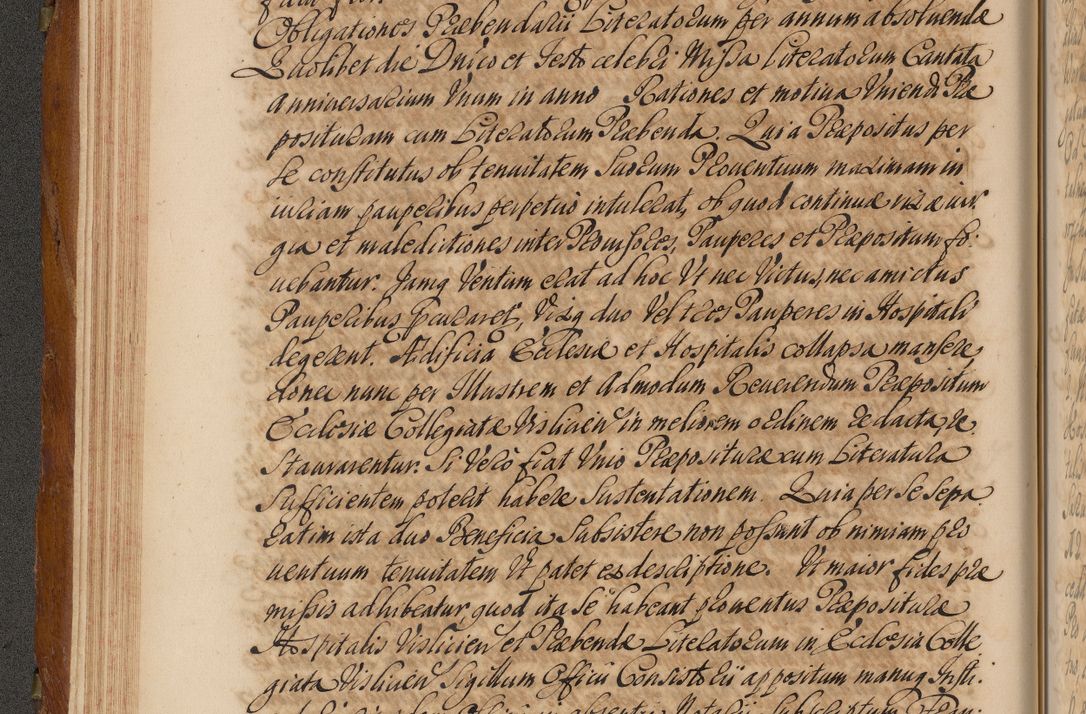 Obligationes Præbendarii Literatorum per annum absoluendæ
Quolibet die Dnico et Festo celebri Missa Literatorum Cantata
Anniuersarium Vnum in anno Rationes et motiua Vniendi Præ
posituram cum Literatorum Præbenda. Quia Præpositus per
se constitutus ob tenuitatem Suorum Prouentuum maximam in
iuriam pauperibus perpetuo intulerat, ob quod continuæ rixæ iur
gia et maledictiones inter Prouisores, Pauperes et Præpositum fo:
uebantur. Jamq Ventum erat ad hoc Vt nec Victus, nec amictus
Pauperibus pcuraret, Vixq duo Vel tres Pauperes in Hospitali
degerent. Ædificia Ecclesiæ et Hospitalis collapsa mansere,
donec nunc per Illustrem et Admodum Reuerendum Præpositum
Ecclesiæ Collegiatæ Vislicien in meliorem ordinem redacta, re
staurarentur. Si Vero fiat Vnio Præpositura cum Literatura
Sufficientem poterit habere Sustentationem. Quia per se sepa
ratim ista duo Beneficia Subsistere non possunt ob nimiam pro
uentuum tenuitatem Vt patet ex descriptione. Vt maior fides præ
missis adhibeatur, quod ita se habeant prouentus Præposituræ
Hospitalis Vislicien et Præbendæ Literatorum in Ecclesia Colle
giata Vislicien Sigillum Officii Consistorii appositum manuq Infri: